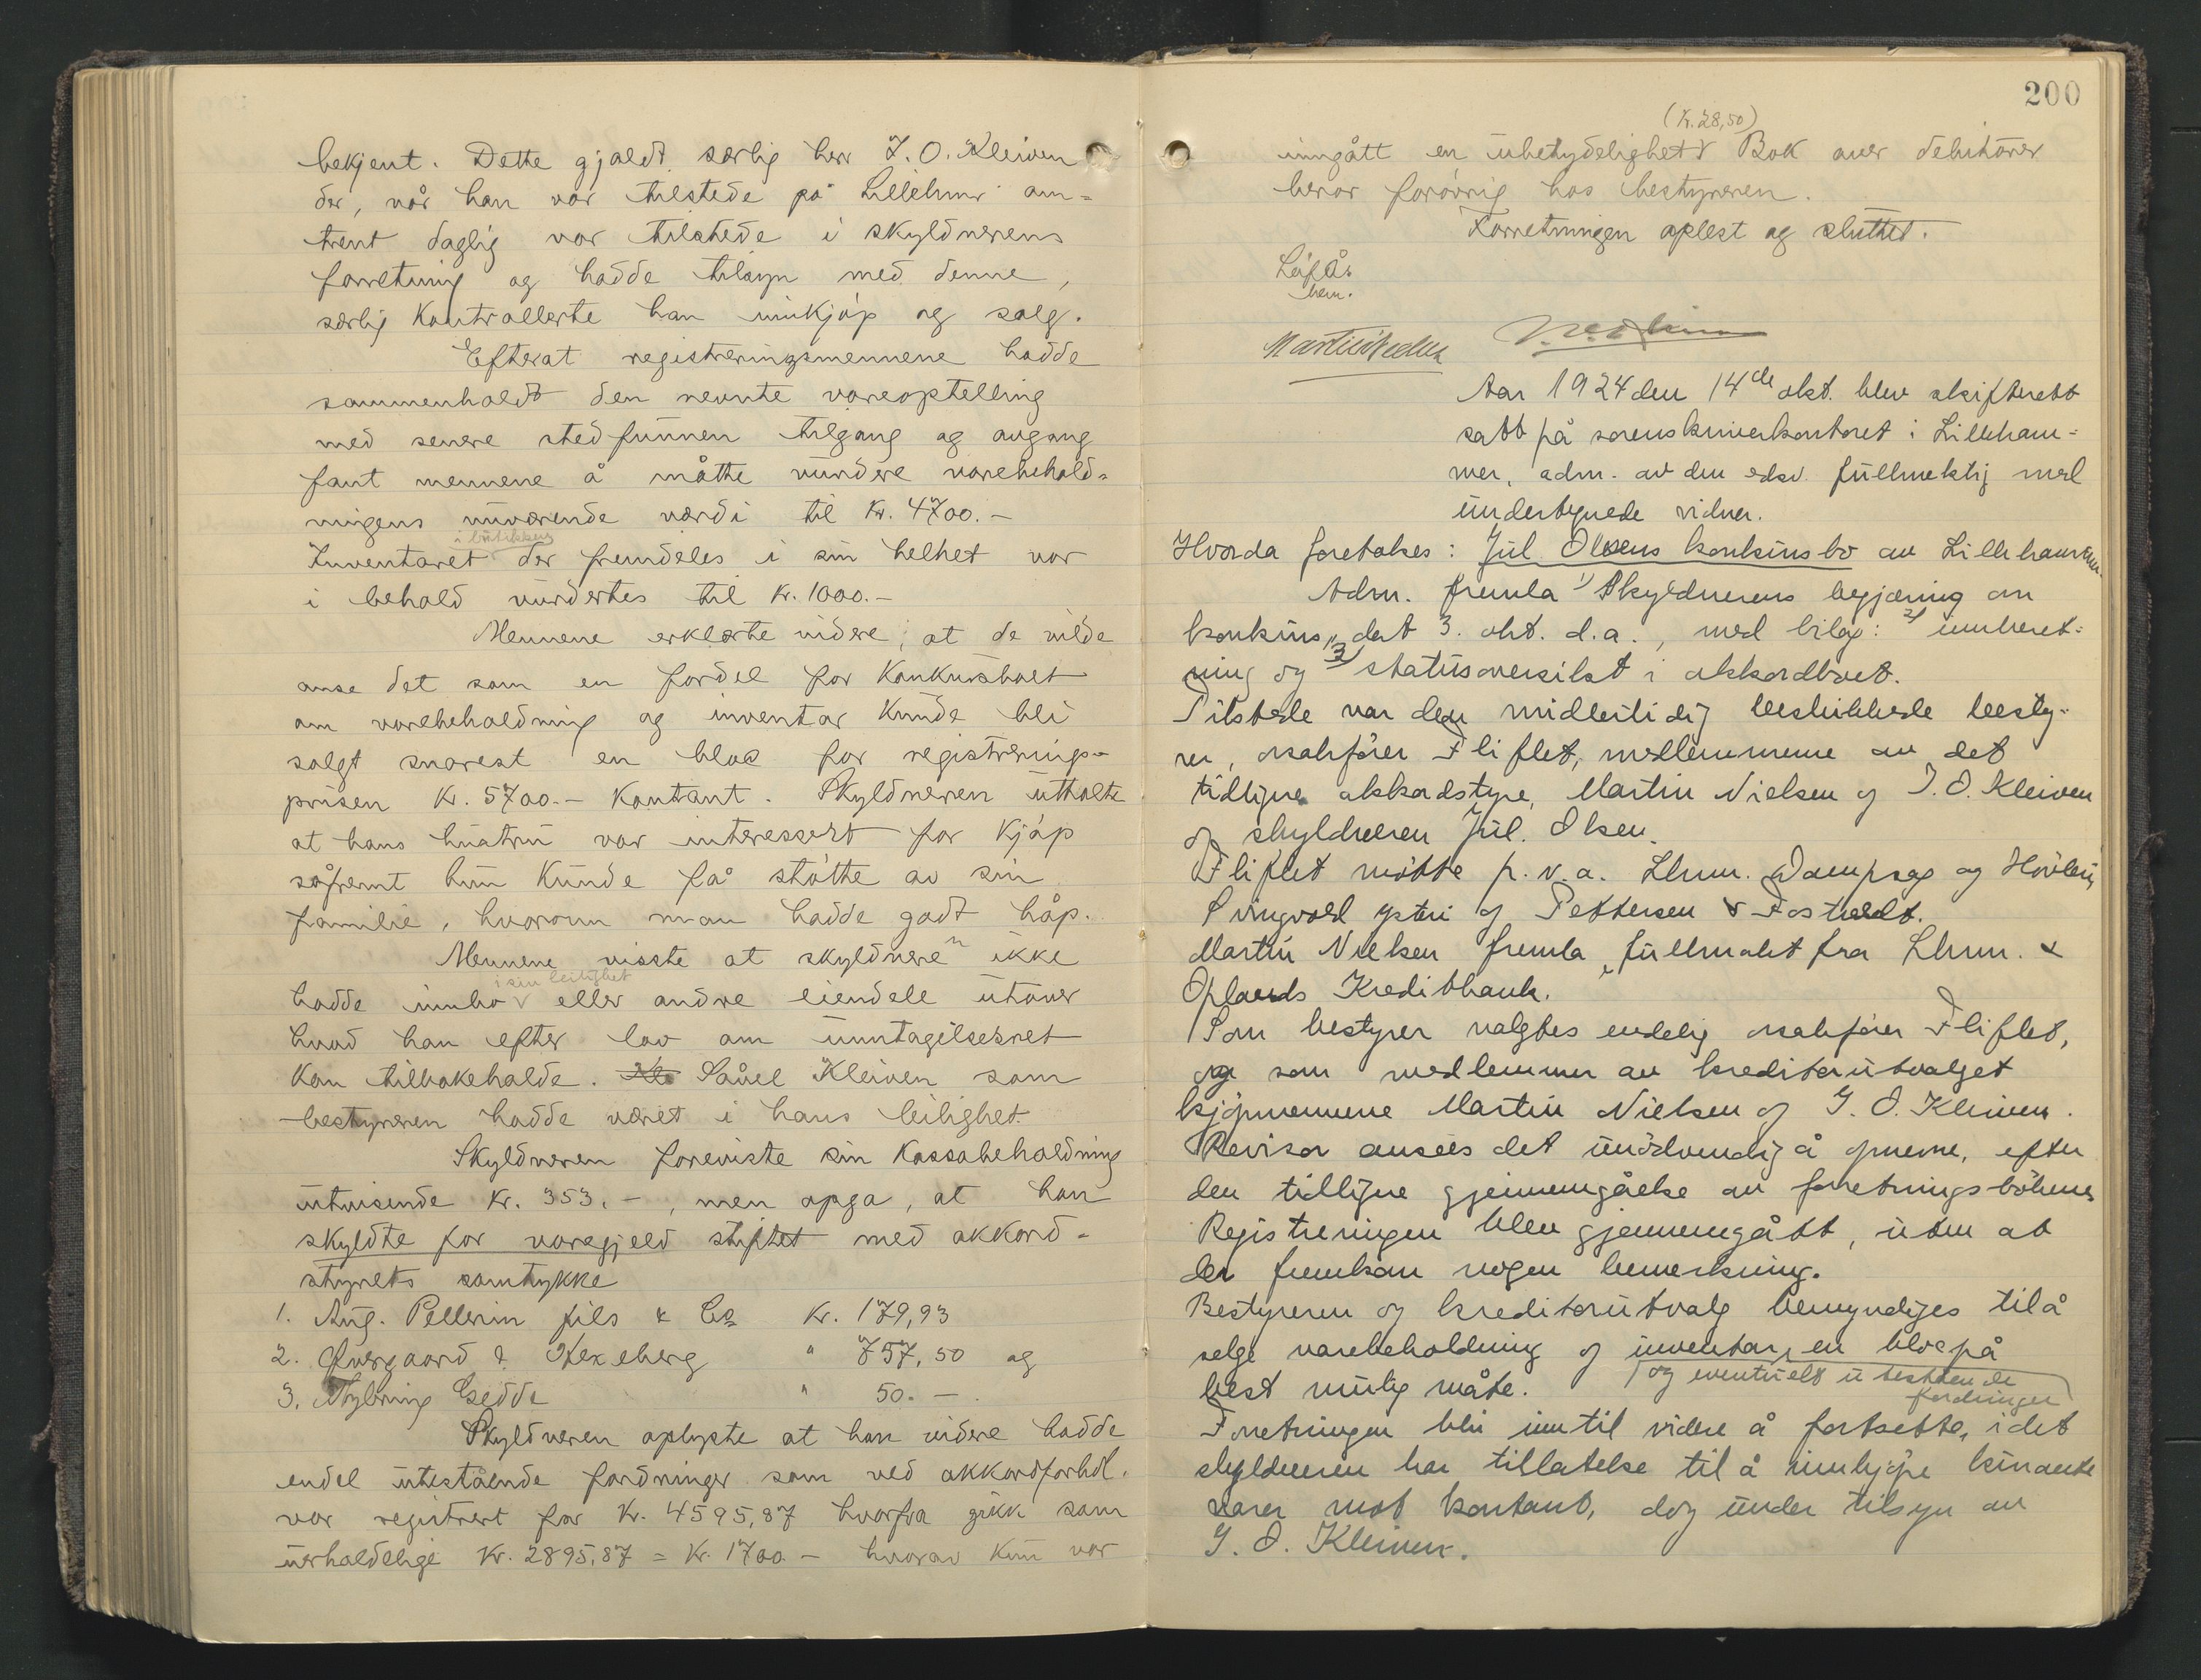 bekjent. Dette gjaldt særlig herr J. O. Kleiven
der, når han var tilstede på Lillehmr om=
trent daglig var tilstede i skyldnerens
forretning og hadde tilsyn med denne,
særlig kontrollerte han innkjøp og salg.
Efterat registreringsmennene hadde
sammenholdt den nevnte vareoptelling
med senere stedfunnen tilgang og avgang
fant mennene å måtte vurdere varebehold=
ningens nuværende værdi til kr. 4700.-
i butikken
Inventaret der fremdeles i sin helhet var
i behold vurdertes til kr. 1000.-
Mennene erklærte videre, at de vilde
anse det som en fordel for konkursboet
om varebeholdning og inventar kunde bli
solgt snarest en bloc for registrerings=
prisen kr. 5700.- kontant. Skyldneren uttalte
at hans hustru var interessert for kjøp
såfremt hun kunde få støtte av sin
familie, hvorom man hadde godt håp.
Mennene visste at skyldneren ikke
i sin leilighet
hadde innbo eller andre eiendele utover
hvad han efter lov om unntagelsesret
kan tilbakeholde. Såvel Kleiven som
bestyreren hadde været i hans leilighet.
Skyldneren foreviste sin kassabeholdning
utvisende kr. 353.-, men opga, at han
skyldte for varegjeld stiftet med akkord=
styrets samtykke
1. Aug. Pellerin fils & Co kr. 179,93
2. Øvergaard & Hexeberg " 757,50 og
3. Gedde " 50.-
Skyldneren oplyste at han videre hadde
endel utestående fordringer som ved akkordforhdl.
var registrert for kr. 4595,87 hvorfra gikk som
uerholdelige kr. 2895,87 = kr. 1700.- hvorav kun var
200
(kr. 28,50)
inngått en ubetydelighet Bok over debitorer
beror forøvrig hos bestyreren.
Forretningen oplest og sluttet.
Martin Nielsen
Aar 1924 den 14de okt. blev skifterett
satt på sorenskriverkontoret i Lilleham=
mer, adm. av den edsv. fullmektig med
undertegnede vidner.
Hvorda foretokes: Jul. Olsens konkursbo av Lillehammer.
Adm. fremla 1) Skyldnerens begjæring om
konkurs, dat 3. okt. d.a., med bilag: 2) innberet=
ning og 3) statusoversikt i akkordboet.
Tilstede var den midlertidig beskikkede besty=
rer, o.sakfører Fliflet, medlemmene av det
tidligere akkordstyre, Martin Nielsen og J. O. Kleiven
og skyldneren Jul. Olsen.
Fliflet møtte p.v.a. Lhmr. Dampsag og Høvleri,
Svingvold Ysteri og Pettersen & Fostveldt.
Martin Nielsen fremla fullmakt fra Lhmr. &
Oplands Kreditbank.
Som bestyrer valgtes endelig o.sakfører Fliflet,
og som medlemmer av kreditorutvalget
kjøpmennene Martin Nielsen og J. O. Kleiven.
Revisor ansees det unødvendig å opnevne, efter
den tidligere gjennemgåelse av forretningsbøkene
Registreringen blev gjennemgått, uten at
der fremkom nogen bemerkning.
Bestyreren og kreditorutvalg bemyndiges til å
selge varebeholdning og inventar, en bloc på
og eventuelt utestående
fordringer
best mulig måte.
Forretningen blir inntil videre å fortsette, idet
skyldneren har tillatelse til å innkjøpe kurante
varer mot kontant, dog under tilsyn av
J. O. Kleiven.